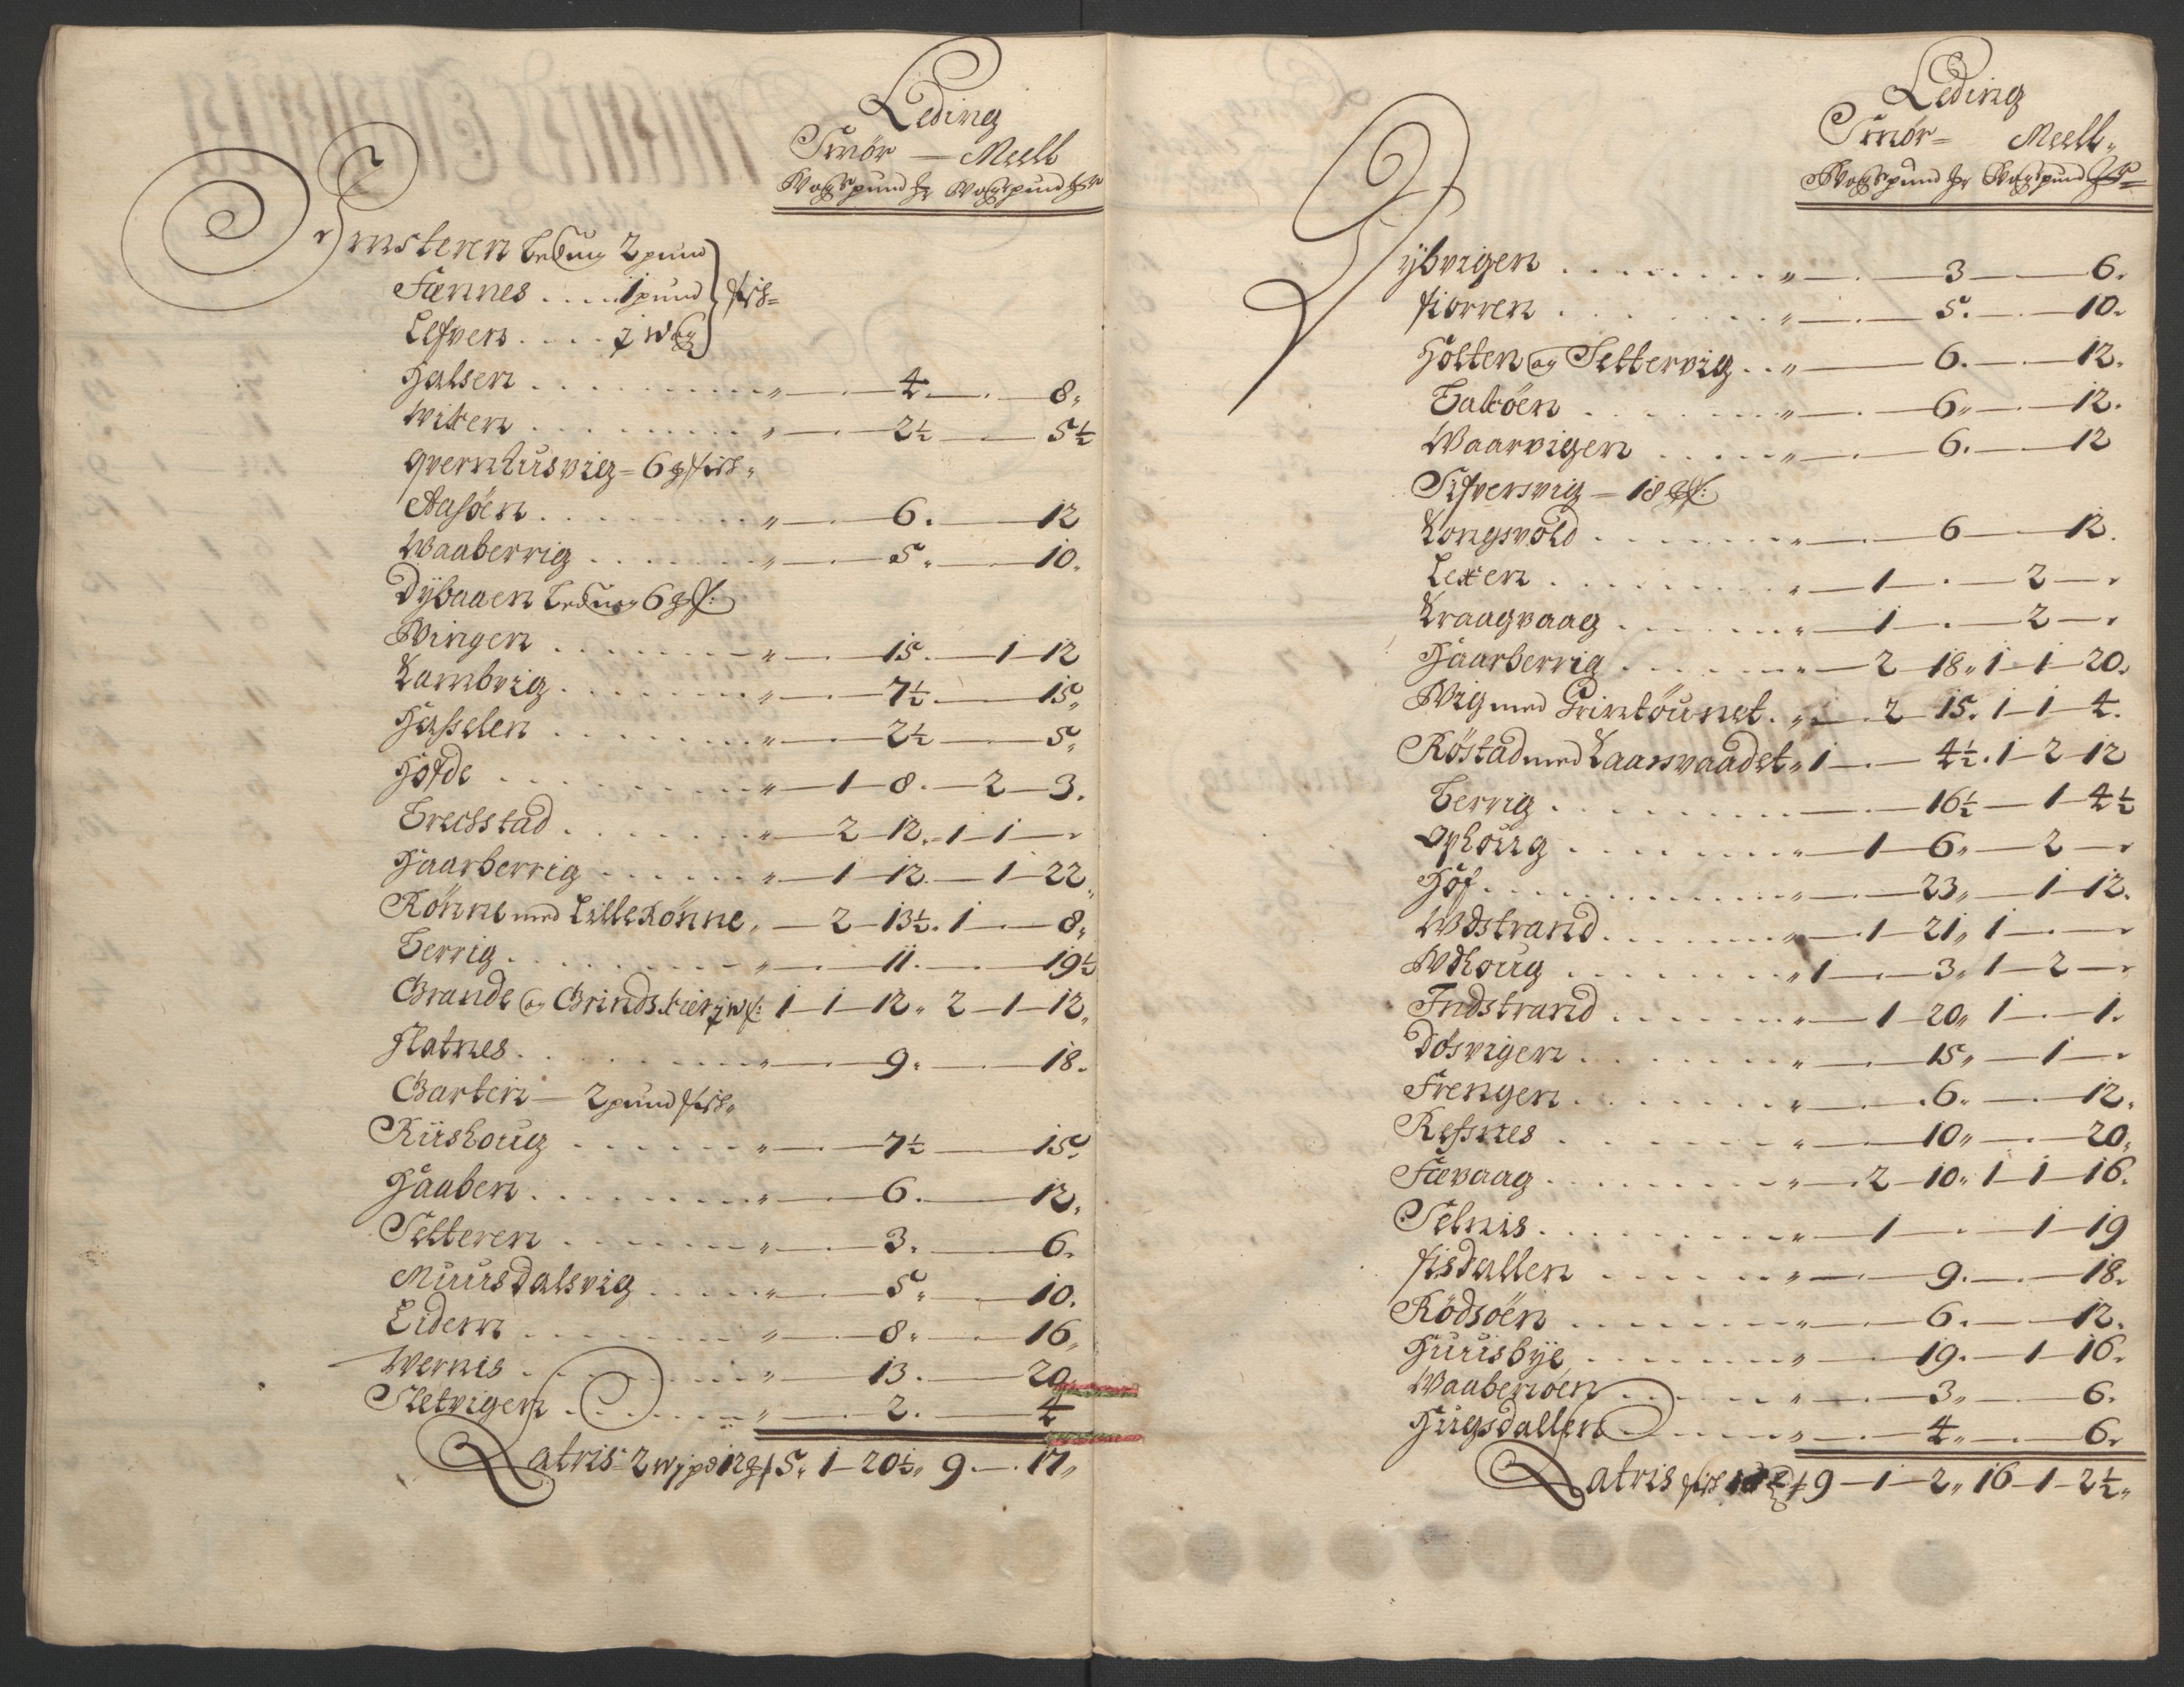 Leding
Smör — Meell
Wog pund Wog pund
Emsteren Leding 2 pund
Fænnes . . . . 1 pund fisk
Lefven . . . . ½ Wog
Halsen . . . „ — 4 — 8„
Witen . . . „ — 2½ — 5½
Qvernhusvig = 6 fisk„
Aasöen . . . „ — 6. — 12
Waaberrig . . . „ — 5„ — 10.
Dÿbaaen Leding 6 f:
Wingen . . . „ — 15. — 1 — 12
Kambvig . . . „ — 7½ — 15„
Hasselen . . . „ — 2½ — 5„
Hofde . . . „ — 1 — 8. — 2 — 3.
Brechstad . . . „ — 2 — 12. — 1 — 1 — „
Haarberrig . . . „ — 1 — 12. — 1 — 22„
Rönne med Lille Rönne„ — 2 — 13½. 1 — 8„
Berrig . . . „ — 11. — 19½
Grande og Grindskier ½ w f: 1 — 1 — 12„ 2 — 1 — 12„
Flatnes . . . „ — 9. — 18.
Garten — 2 pund fisk„
Riishoug . . . „ — 7½ — 15.
Haaben . . . „ — 6. — 12„
Setteren . . . „ — 3. — 6.
Muursdalsvig . . . „ — 5„ — 10.
Eidem . . . „ — 8. — 16„
Wernis . . . „ — 13. — 20„
Sletvigen . . . „ — 2. — 4
Latris 2 w j pd 12 f 5„ 1 — 20½„ 9 — . 17„
Leding
Smör = Meell„
Wog pund Wog pund
Dÿbvigen . . . „ — 3 — 6.
Kiorren . . . „ — 5. — 10.
Holten og Settervig . . „ — 6. — 12.
Taltöen . . . „ — 6„ — 12.
Waarvigen . . . „ — 6. — 12
Sifversvig — 18 f:
Kongsvold . . . „ — 6 — 12.
Lexen . . . „ — 1 — . — 2 — „
Kraagvaag . . . „ — 1 — . — 2 — „
Haarberrig . . . „ — 2 — 18„ 1 — 1 — 20.
Wig med Grintöunet . „ — 2 — 15. 1 — 1 — 4.
Röstad med Laansvaadet „ 1 — . — 4½. 1 — 2 — 12
Berrig . . . — 16½ — 1 — 4½
Ophoug . . . „ — 1 — 6„ — 2 — „
Hof . . . „ — 23„ — 1 — 12.
Wdstrand . . . „ — 1 — 21„ 1 — . — „
Wdhoug . . . „ 1 — . — 3„ 1 — 2 — „
Indstrand . . . „ — 1 — 20„ 1 — . — 1.
Dösvigen . . . „ — 15„ — 1 — „
Frengen . . . „ — 6. — 12.
Refsnes . . . „ — 10„ — 20„
Fævaag . . . „ — 2 — 10„ 1 — 1 — 16.
Selnis . . . „ — 1 — . — 1 — 19
Fisdallen . . . „ — 9. — 18.
Rödsöen . . . „ — 6. — 12.
Huusbÿe . . . „ — 19. — 1 — 16.
Waabenöen . . . „ — 3„ — 6.
Hugsdallen . . . „ — 4„ — 6.
Latris fisk 9 — 1 — 2„ 16 — 1 — 2½„